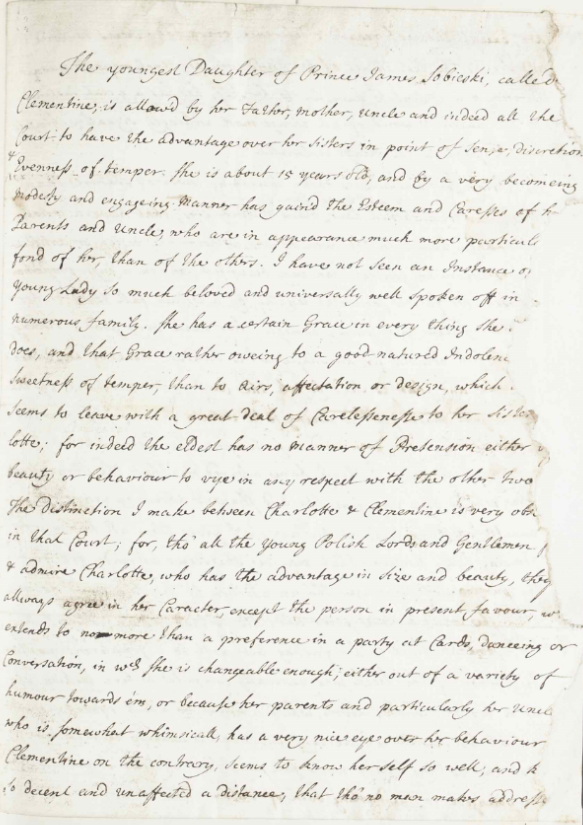 The youngest Daughter of Prince James Sobieski, called
Clementine, is allowed by her Father, mother, uncle and indeed all the
Court to have the advantage over her Sisters in point of Sense, discretion
& Evenness of temper. She is about 15 years old, and by a very becomeing
modesty and engageing Manner has gain'd the Esteem and Caresses of h
Parents and Uncle, who are in appearance much more particul
fond of her, than of the others. I have not seen an Instance o
Young Lady so much beloved and universally well spoken off in
numerous family. She has a certain Grace in every thing she
does, and that Grace rather oweing to a good natured Indolen
sweetness of temper, than to airs, affectation or design, which
seems to leave with a great deal of Carelessenesse to her Sister
lotte; for indeed the eldest has no manner of Pretension either
beauty or behaviour to vye in any respect with the other two
The distinction I make between Charlotte & Clementine is very obs
in that Court; for, tho' all the young Polish Lords and Gentlemen
& admire Charlotte, who has the advantage in Size and beauty, they
allways agree in her Caracter, except the person in present favour, w
extends to no more than a preference in a party at Cards, danceing or
Conversation, in wch She is changeable enough; either out of a variety of
humour towards 'em, or because her parents and particularly her Uncle
who is somewhat whimsicall, has a very nice eye over her behaviour
Clementine on the contrary, seems to know herself so well, and k
so decent and unaffected a distance, that tho' no man makes addresse